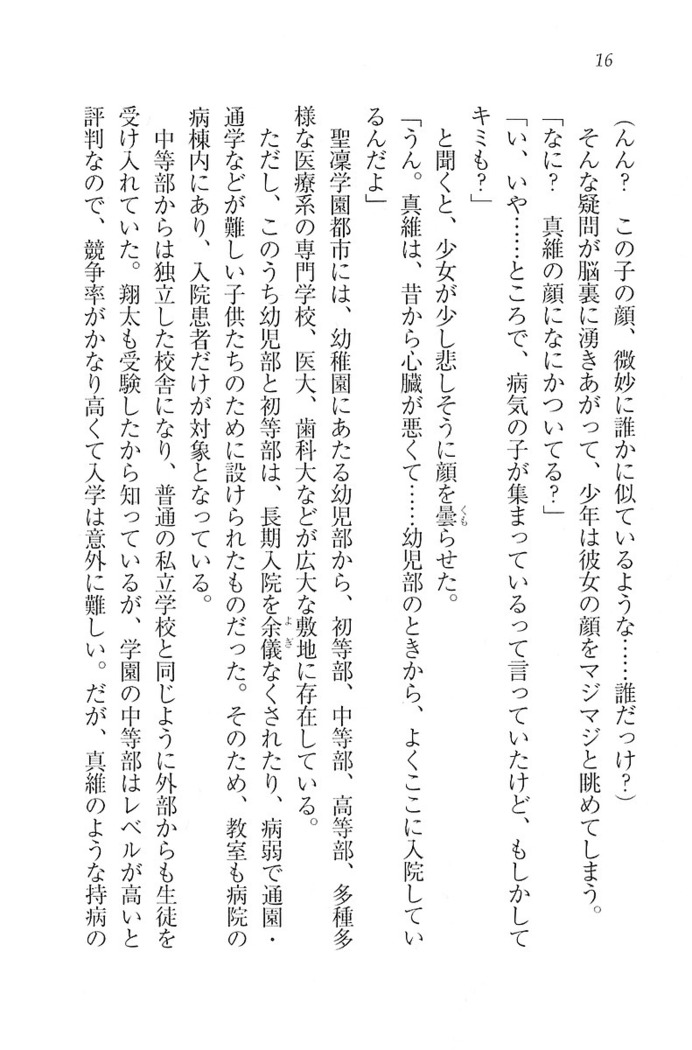 16
(んん?　この子の顔、微妙に誰かに似ているような……誰だっけ?)
そんな疑問が脳裏に湧きあがって、少年は彼女の顔をマジマジと眺めてしまう。
「なに?　真維の顔になにかついてる?」
「い、いや……ところで、病気の子が集まっているって言っていたけど、もしかして
キミも?」
と聞くと、少女が少し悲しそうに顔を曇らせた。
「うん。真維は、昔から心臓が悪くて……幼児部のときから、よくここに入院してい
るんだよ」
聖凜学園都市には、幼稚園にあたる幼児部から、初等部、中等部、高等部、多種多
様な医療系の専門学校、医大、歯科大などが広大な敷地に存在している。
ただし、このうち幼児部と初等部は、長期入院を余儀なくされたり、病弱で通園・
通学などが難しい子供たちのために設けられたものだった。そのため、教室も病院の
病棟内にあり、入院患者だけが対象となっている。
中等部からは独立した校舎になり、普通の私立学校と同じように外部からも生徒を
受け入れていた。翔太も受験したから知っているが、学園の中等部はレベルが高いと
評判なので、競争率がかなり高くて入学は意外に難しい。だが、真維のような持病の